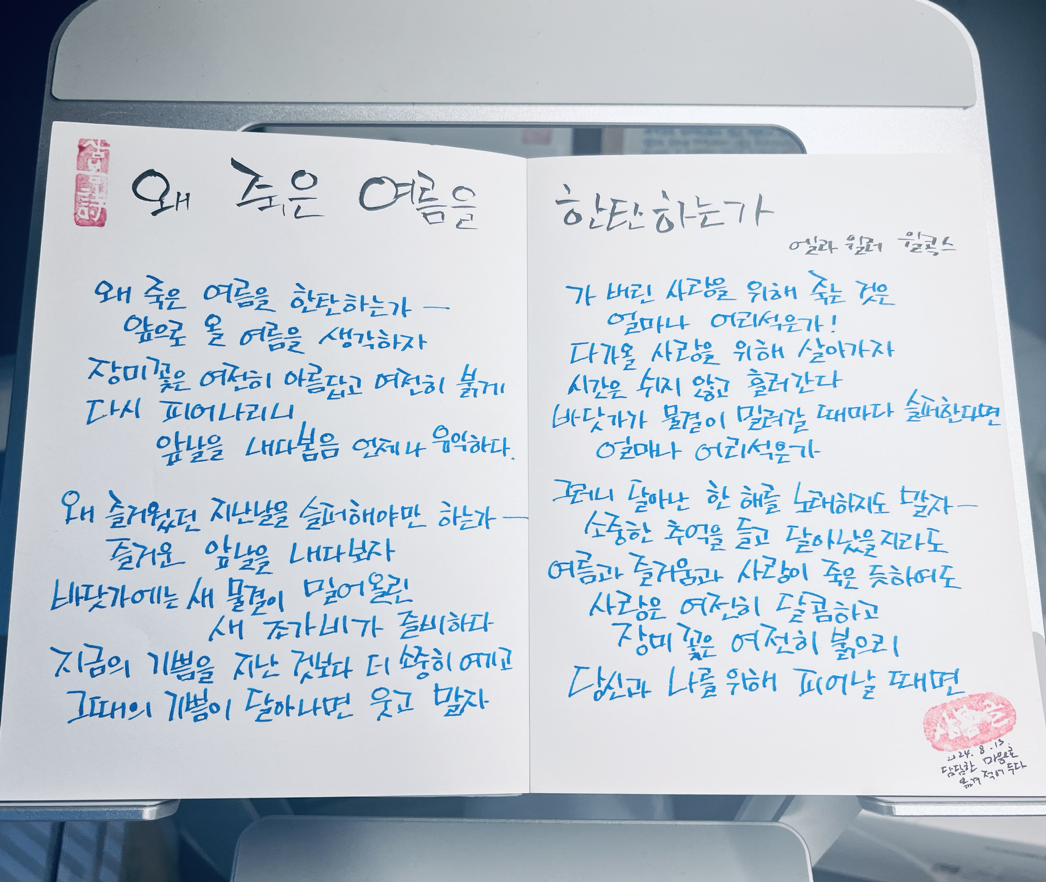 왜 죽은 여름을 한탄하는가
엘라 윌러 윌콕스
왜 죽은 여름을 한탄하는가 —
앞으로 올 여름을 생각하자
장미꽃은 여전히 아름답고 여전히 붉게
다시 피어나리니
앞날을 내다봄음 언제나 유익하다.
왜 즐거웠던 지난날을 슬퍼해야만 하는가 —
즐거운 앞날을 내다보자
바닷가에는 새 물결이 밀어올린
새 조가비가 즐비하다
지금의 기쁨을 지난 것보다 더 소중히 여기고
그때의 기쁨이 달아나면 웃고 말자
가 버린 사랑을 위해 죽는 것은
얼마나 어리석은가!
다가올 사랑을 위해 살아가자
시간은 쉬지 않고 흘러간다
바닷가가 물결이 밀려갈 때마다 슬퍼한다면
얼마나 어리석은가
그러니 달아난 한 해를 노래하지도 말자 —
소중한 추억을 들고 달아났을지라도
여름과 즐거움과 사랑이 죽은 듯하여도
사랑은 여전히 달콤하고
장미꽃은 여전히 붉으리
당신과 나를 위해 피어날 때면
24. 8. 13.
담담한 마음으로
옮겨 적어 두다